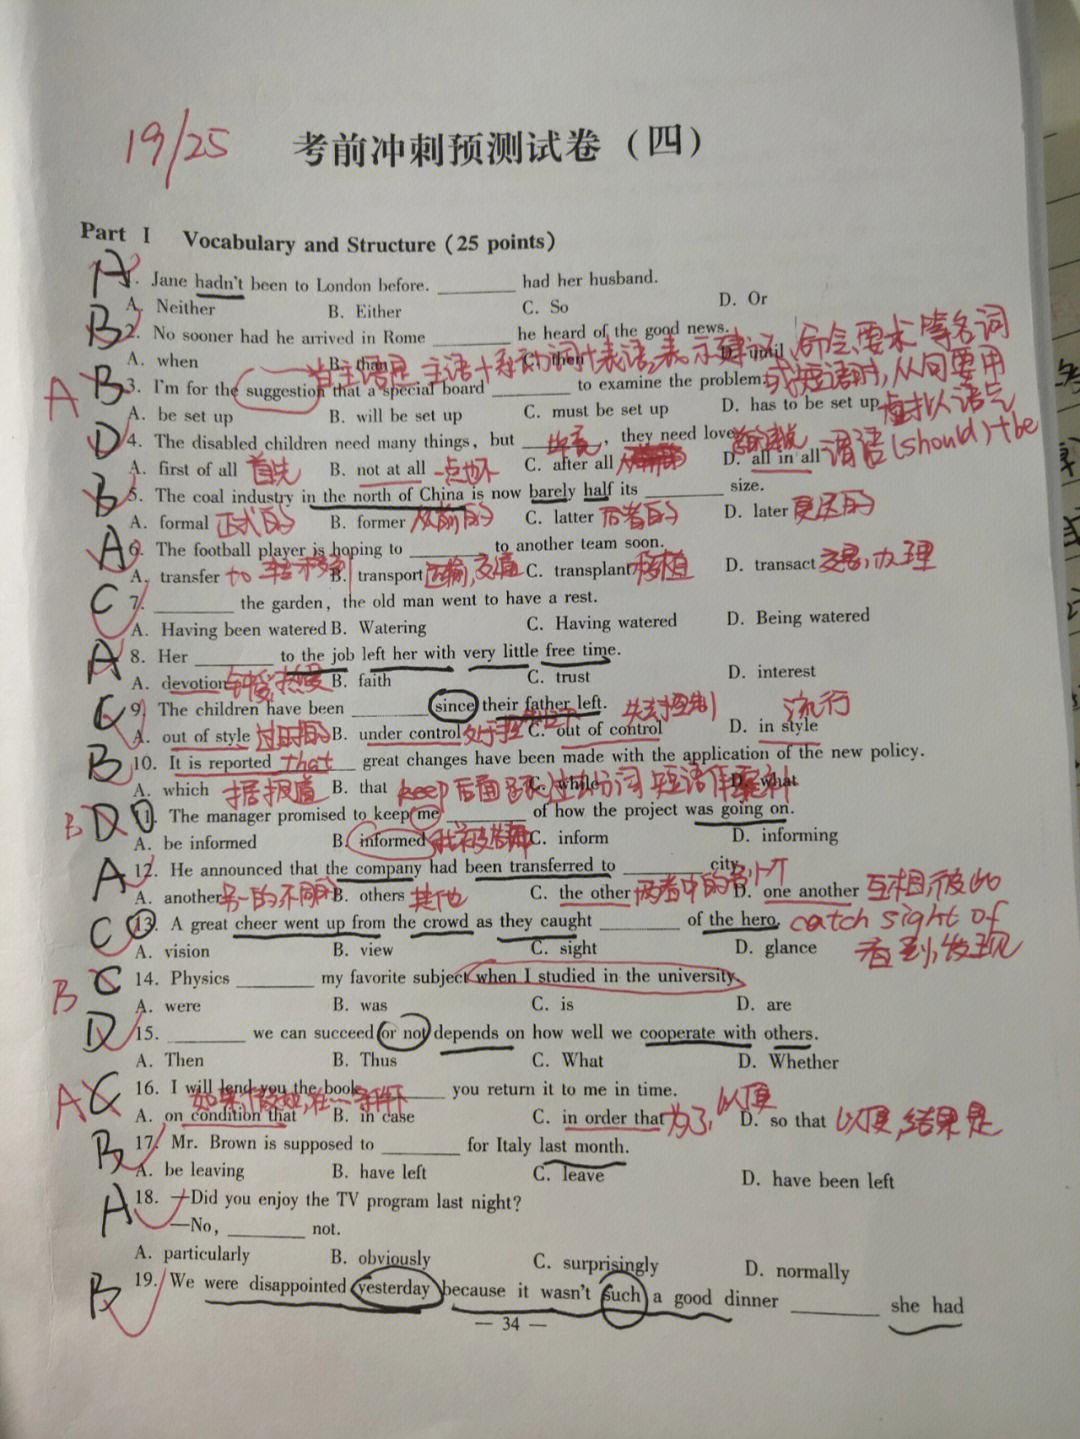 19/25
考前冲刺预测试卷（四）
Part Ⅰ Vocabulary and Structure (25 points)
A 1. Jane hadn't been to London before. ______ had her husband.
A. Neither B. Either C. So D. Or
B 2. No sooner had he arrived in Rome ______ he heard of the good news.
A. when B. than C. then D. until
当主语是 主语+系动词+表语,表示建议、命令、要求等名词
A B 3. I'm for the suggestion that a special board ______ to examine the problem.
或短语时,从句要用
A. be set up B. will be set up C. must be set up D. has to be set up
虚拟语气
D 4. The disabled children need many things, but ______, they need love
谓语(should)+be
A. first of all 首先 B. not at all 一点也不 C. after all D. all in all
B 5. The coal industry in the north of China is now barely half its ______ size.
A. formal 正式的 B. former 从前的 C. latter 后者的 D. later 更迟的
A 6. The football player is hoping to ______ to another team soon.
A. transfer to 转移到 B. transport 运输 C. transplant 移植 D. transact 交易,办理
C 7. ______ the garden, the old man went to have a rest.
A. Having been watered B. Watering C. Having watered D. Being watered
A 8. Her ______ to the job left her with very little free time.
A. devotion B. faith C. trust D. interest
C 9. The children have been ______ since their father left.
失去控制 流行
A. out of style 过时的 B. under control C. out of control D. in style
B 10. It is reported that ______ great changes have been made with the application of the new policy.
A. which 据报道 B. that C. while D. what
keep后面跟过去分词 短语作宾补
B D 11. The manager promised to keep me ______ of how the project was going on.
A. be informed B. informed C. inform D. informing
A 12. He announced that the company had been transferred to ______ city.
A. another B. others 其他 C. the other 两者中的另一个 D. one another 互相,彼此
C 13. A great cheer went up from the crowd as they caught ______ of the hero. catch sight of
A. vision B. view C. sight D. glance 看到,发现
B C 14. Physics ______ my favorite subject when I studied in the university.
A. were B. was C. is D. are
D 15. ______ we can succeed or not depends on how well we cooperate with others.
A. Then B. Thus C. What D. Whether
A C 16. I will lend you the book ______ you return it to me in time.
A. on condition that B. in case C. in order that 为了,以便 D. so that 以便,结果是
B 17. Mr. Brown is supposed to ______ for Italy last month.
A. be leaving B. have left C. leave D. have been left
A 18. —Did you enjoy the TV program last night?
—No, ______ not.
A. particularly B. obviously C. surprisingly D. normally
B 19. We were disappointed yesterday because it wasn't such a good dinner ______ she had
— 34 —